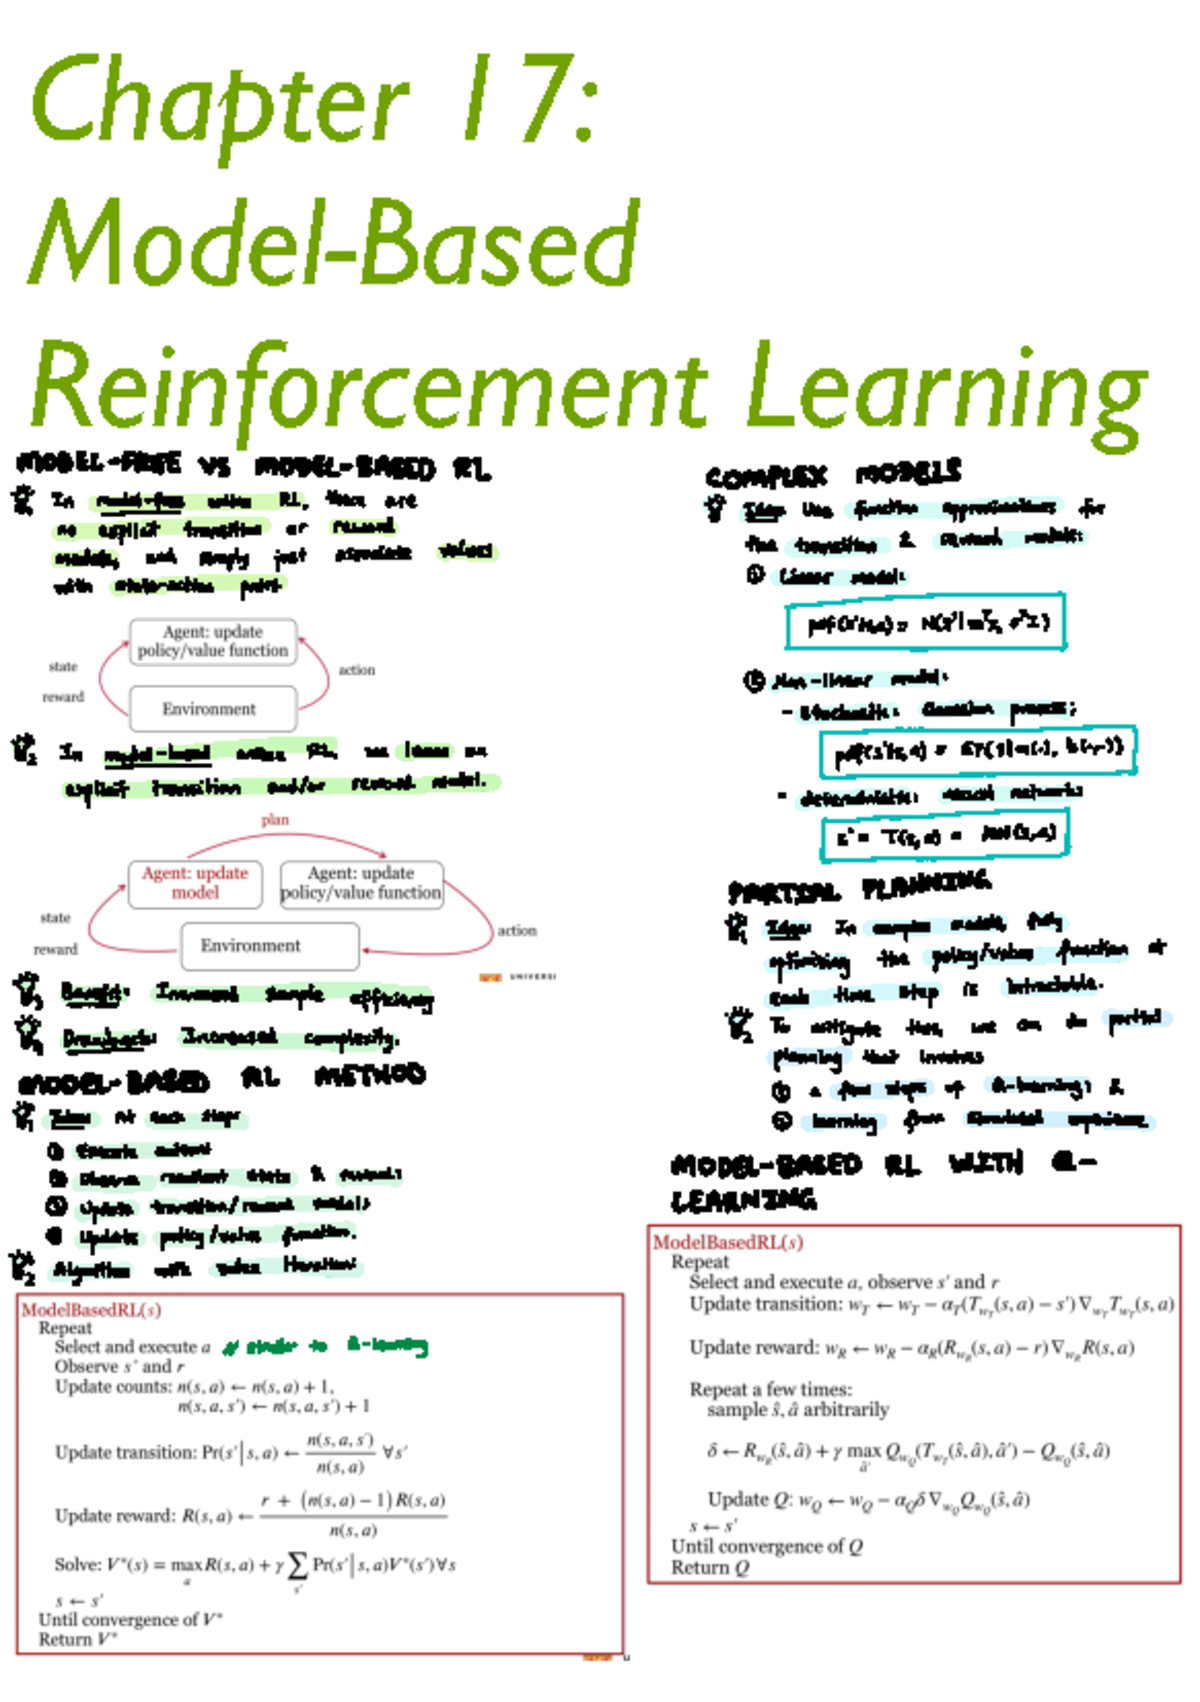 Chapter 17:
Model-Based
Reinforcement Learning
MODEL-FREE VS MODEL-BASED RL
In model-free RL, there are
no explicit transition or reward
models, and simply just values
with state-action point
Agent: update
policy/value function
state
action
reward
Environment
In model-based RL, we learn an
explicit transition and/or reward model.
plan
Agent: update
model
Agent: update
policy/value function
state
reward
Environment
action
UNIVERSI
Benefit: Increased sample efficiency
Drawback: Increased complexity.
MODEL-BASED RL METHOD
Idea: At each step:
① Execute action
② Observe resultant state & reward
③ Update transition/reward models
④ Update policy/value function.
Algorithm with Value Iteration:
ModelBasedRL(s)
Repeat
Select and execute a // similar to Q-learning
Observe s' and r
Update counts: n(s, a) ← n(s, a) + 1,
n(s, a, s') ← n(s, a, s') + 1
Update transition: Pr(s'|s, a) ← n(s, a, s') / n(s, a) ∀s'
Update reward: R(s, a) ← r + (n(s, a) − 1)R(s, a) / n(s, a)
Solve: V*(s) = max_a R(s, a) + γ ∑_s' Pr(s'|s, a)V*(s')∀s
s ← s'
Until convergence of V*
Return V*
COMPLEX MODELS
Idea: Use function approximations for
the transition & reward models:
① Linear model:
pdf(s'|s,a) = N(s'|wᵀx, σ²I)
② Non-linear model:
- Stochastic: Gaussian process:
pdf(s'|s,a) = GP(s|m(.), k(.,.))
- deterministic: neural networks
s' = T(s,a) = NN(s,a)
PARTIAL PLANNING
Idea: In complex models, fully
optimizing the policy/value function at
each time step is intractable.
To mitigate this, we can do partial
planning that involves
① a few steps of Q-learning; &
② learning from simulated experience.
MODEL-BASED RL WITH Q-
LEARNING
ModelBasedRL(s)
Repeat
Select and execute a, observe s' and r
Update transition: w_T ← w_T − α_T(T_{w_T}(s, a) − s')∇_{w_T}T_{w_T}(s, a)
Update reward: w_R ← w_R − α_R(R_{w_R}(s, a) − r)∇_{w_R}R(s, a)
Repeat a few times:
sample ŝ, â arbitrarily
δ ← R_{w_R}(ŝ, â) + γ max_{â'} Q_{w_Q}(T_{w_T}(ŝ, â), â') − Q_{w_Q}(ŝ, â)
Update Q: w_Q ← w_Q − α_Qδ∇_{w_Q}Q_{w_Q}(ŝ, â)
s ← s'
Until convergence of Q
Return Q